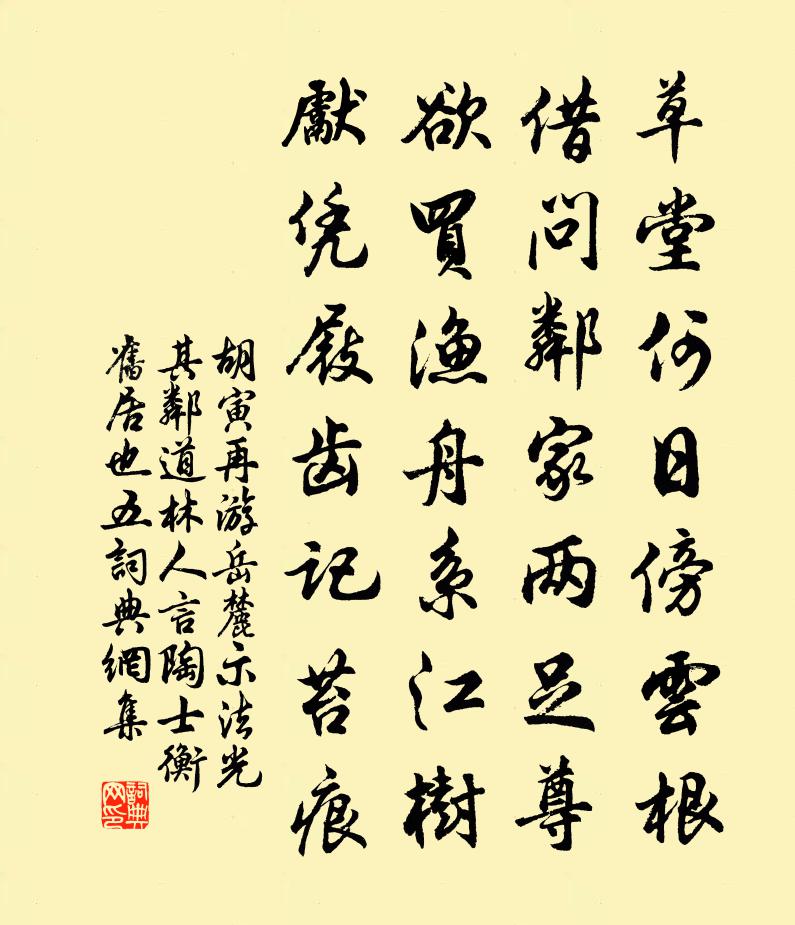 草堂何日傍雲根
借問鄰家两足尊
欲買漁舟系江樹
獻凭屐齿記苔痕
胡寅再游岳麓示法光
其鄰道林人言陶士衡
舊居也五詞典網集
詞典
网印